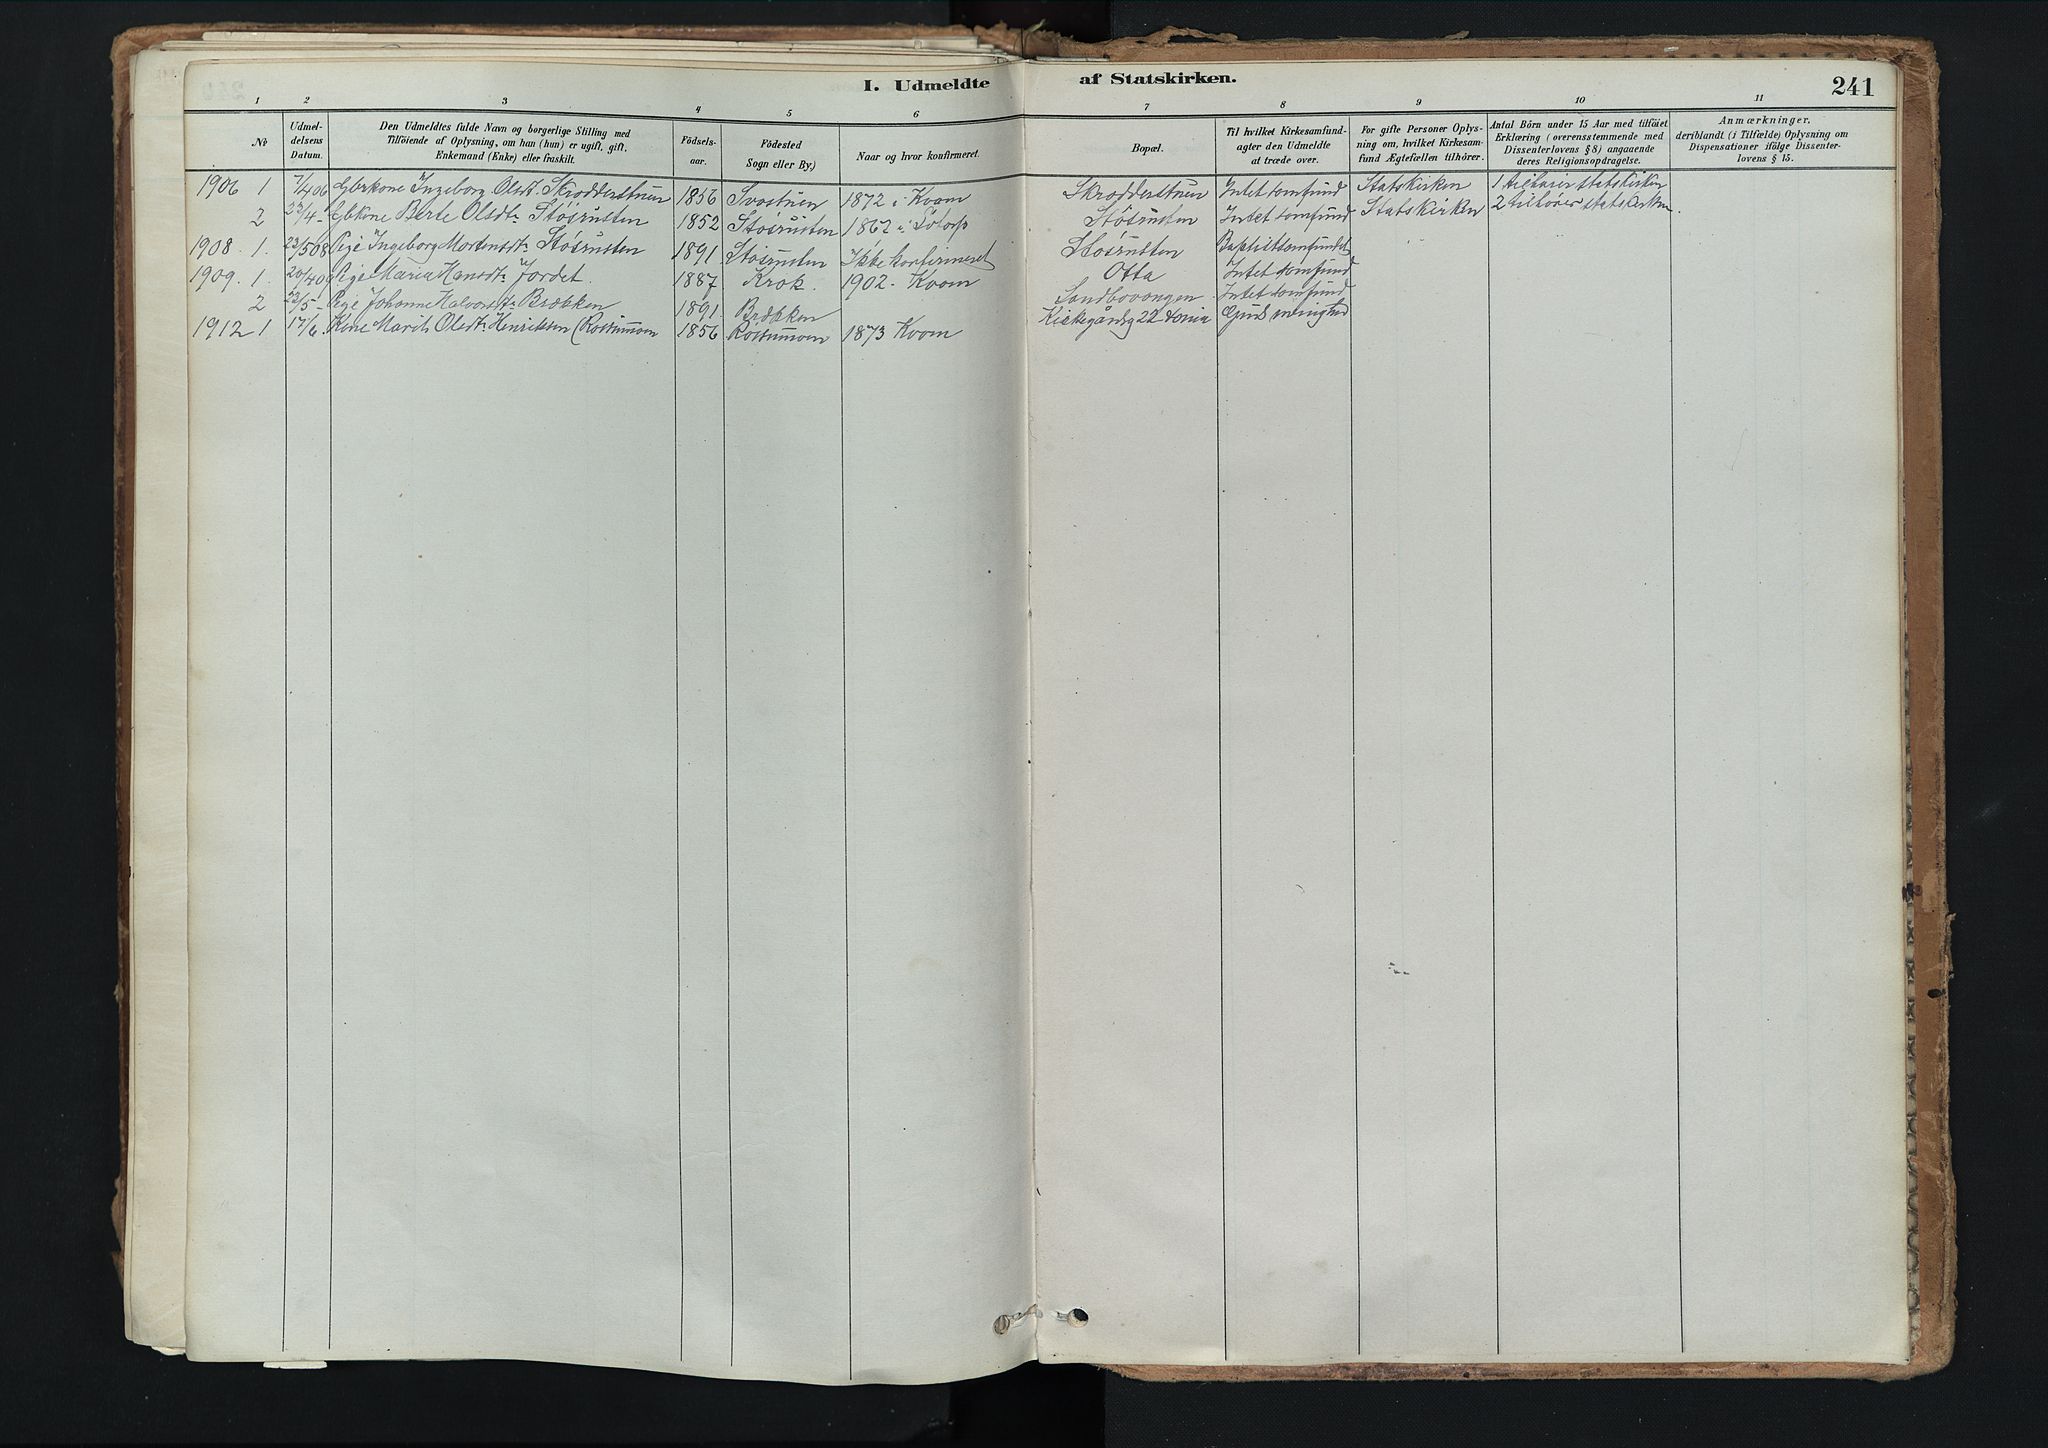 I. Udmeldte af Statskirken.
241
1 2 3 4 5 6 7 8 9 10 11
No
Udmel-
delsens
Datum.
Den Udmeldtes fulde Navn og borgerlige Stilling med
Tilföiende af Oplysning, om han (hun) er ugift, gift,
Enkemand (Enke) eller fraskilt.
Födsels-
aar.
Födested
Sogn eller By.)
Naar og hvor konfirmeret.
Bopæl.
Til hvilket Kirkesamfund-
agter den Udmeldte
at træde over.
For gifte Personer Oplys-
ning om, hvilket Kirkesam-
fund Ægtefællen tilhörer.
Antal Börn under 15 Aar med tilföiet
Erklæring (overensstemmende med
Dissenterlovens § 8) angaaende
deres Religionsopdragelse.
Anmærkninger,
deriblandt (i Tilfælde) Oplysning om
Dispensationer ifölge Dissenter-
lovens § 15.
1906 1 7/4 06 Gbrkone Ingeborg Olsdt. Skrodderstuen 1856 Svastuen 1872 i Kvam Skrodderstuen Intet samfund Statskirken 1 tilhører statskirken
2 23/4 Gbkone Berte Olsdt. Stösrusten 1852 Stösrusten 1867 i Södorp Stösrusten Intet samfund Statskirken 2 tilhører statskirken.
1908. 1. 23/5 08 Pige Ingeborg Mortensdt. Stösrusten 1891 Stösrusten Ikke konfirmeret Stösrusten Baptistsamfundet
1909. 1 20/4 09 Pige Maria Hansdt. Jordet. 1887 Krok 1902. Kvam Otta Intet samfund
2 22/5 Pige Johanne Halvorsdt. Brækken 1891 Brækken Sandbovangen Intet samfund
1912 1 17/6 Kone Marit Olsdt. Henriksen (Rostummoen 1856 Rostummoen 1873 Kvam Kirkegårdsg 22 Guds menighed